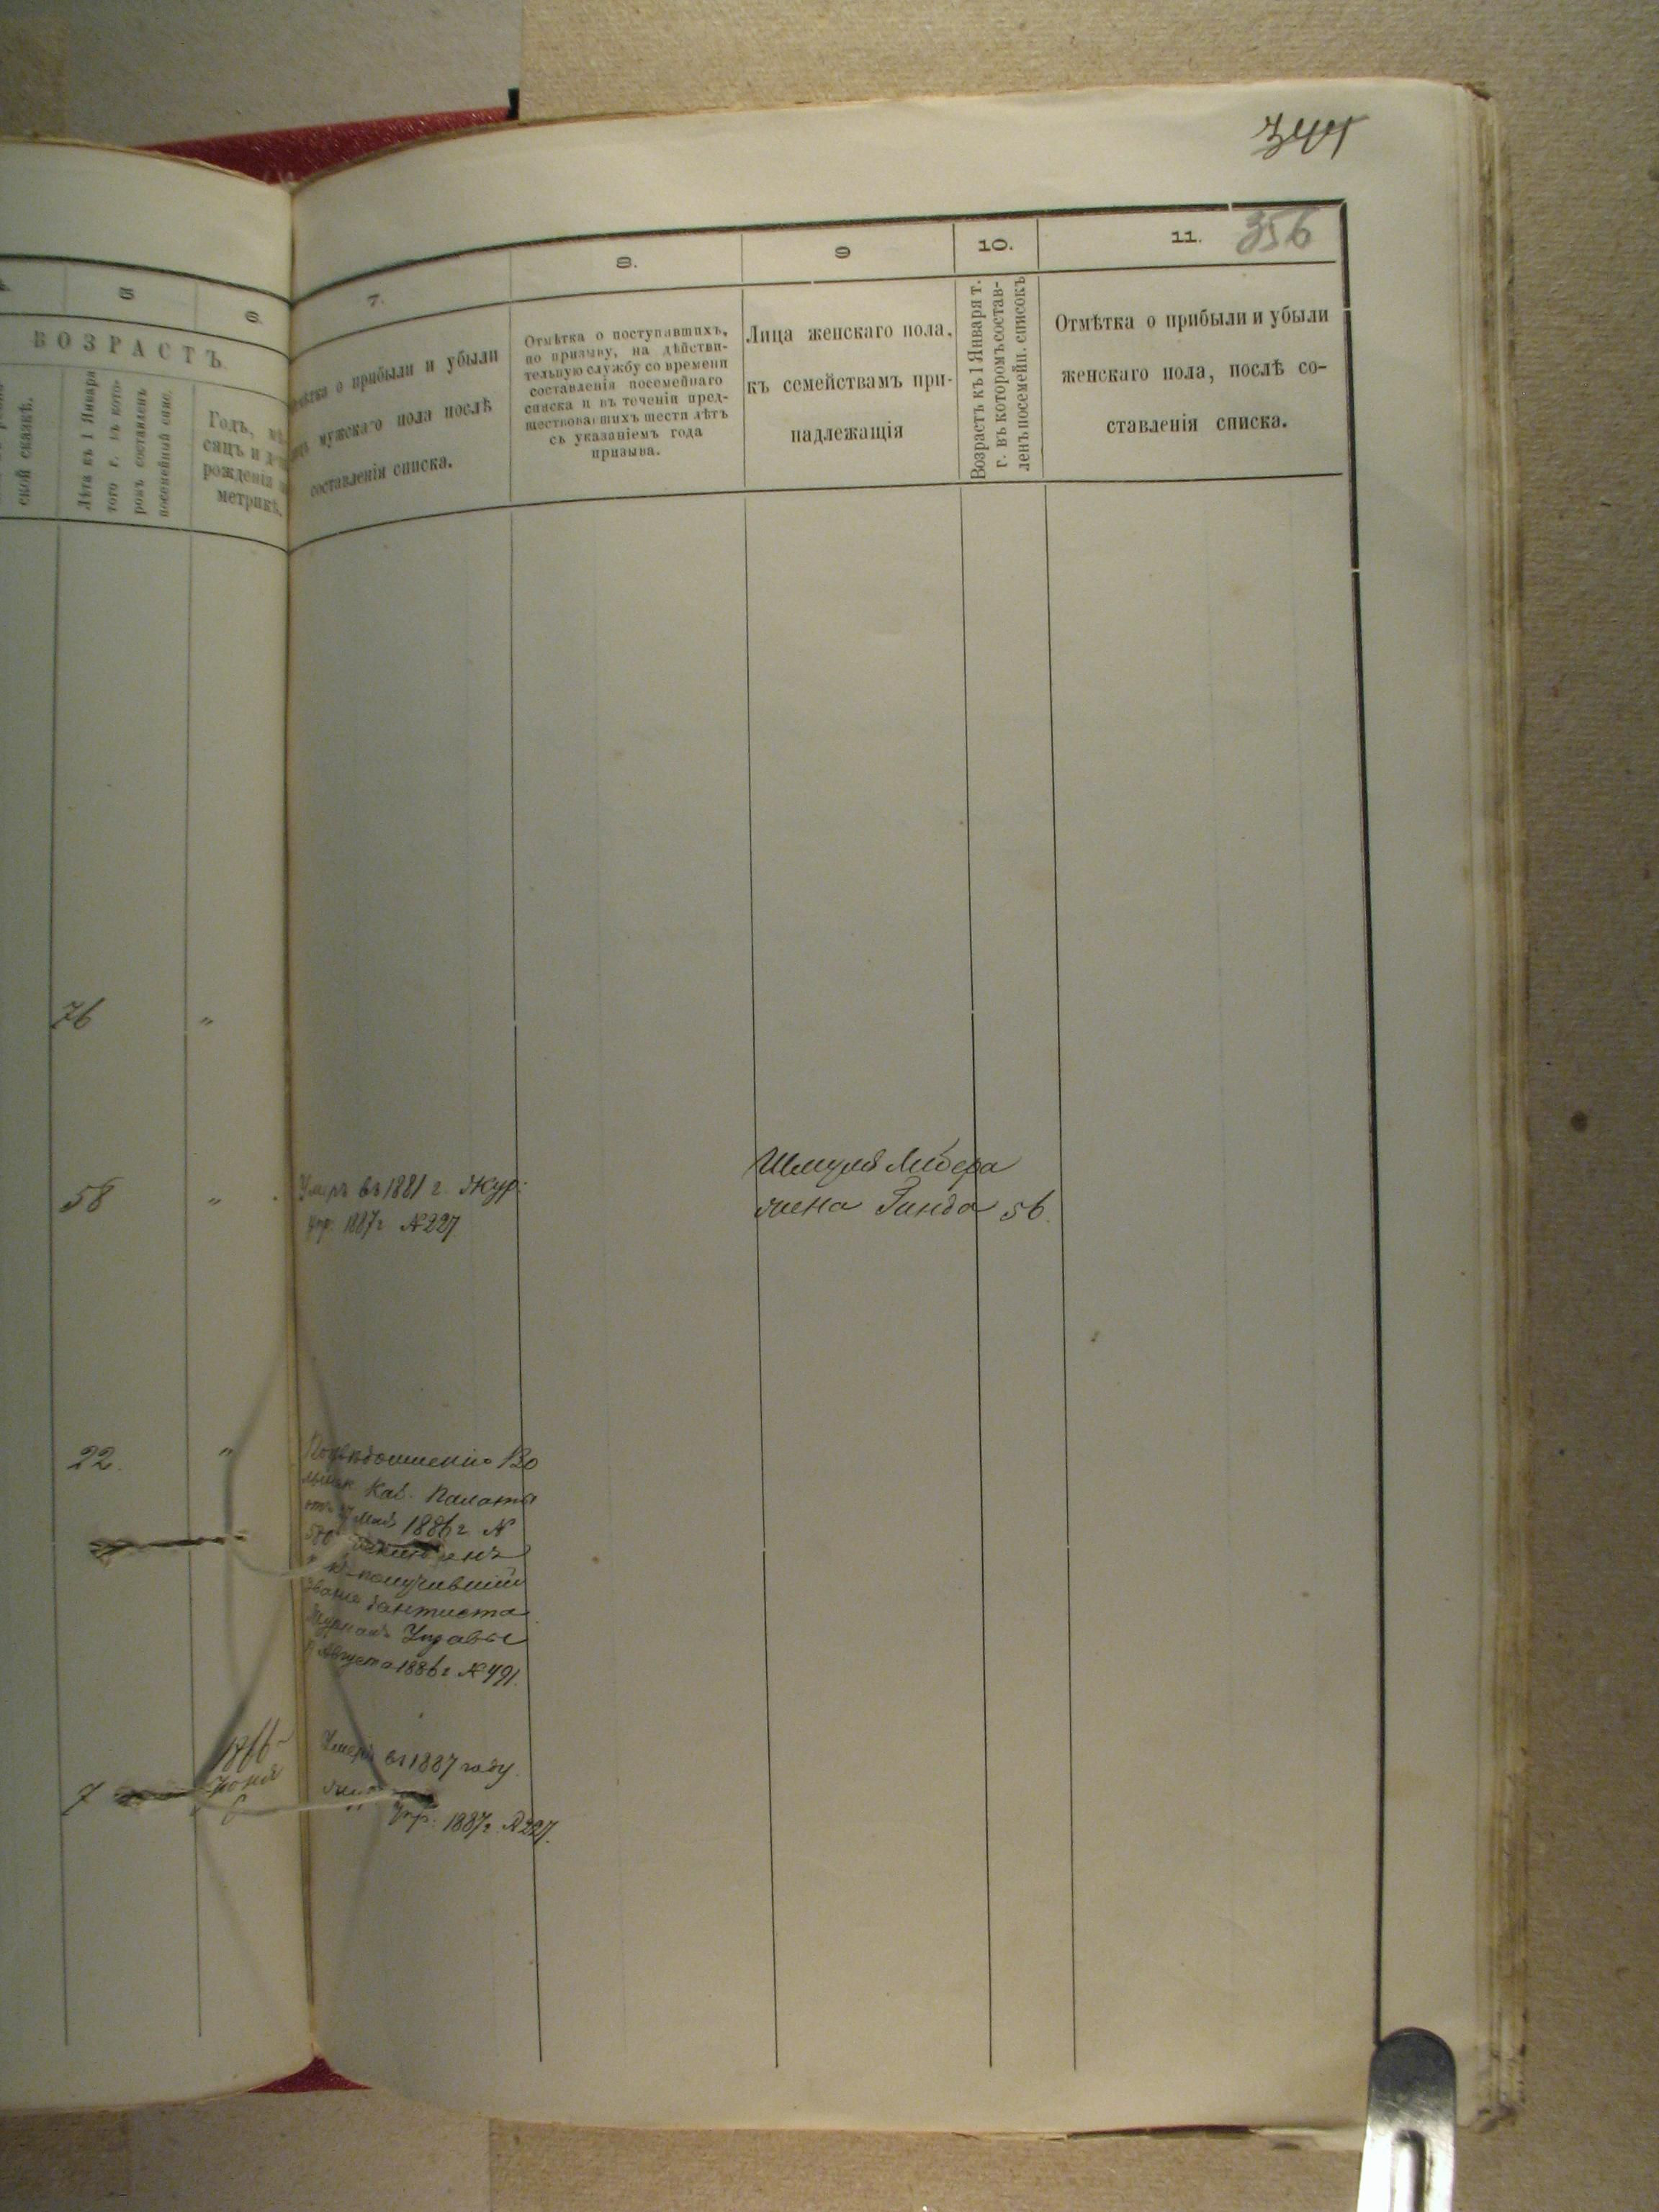 344
356
5
6.
7.
8.
9
10.
11.
ВОЗРАСТЪ.
ской сказкѣ.
Лѣта къ 1 Января
того г. въ кото-
ромъ составленъ
посемейный спис.
Годъ, мѣ-
сяцъ и
рожденія
метрикѣ.
о прибыли и убыли
мужскаго пола послѣ
составленія списка.
Отмѣтка о поступавшихъ,
по призыву, на дѣйстви-
тельную службу со времени
составленія посемейнаго
списка и въ теченіи пред-
шествовавшихъ шести лѣтъ
съ указаніемъ года
призыва.
Лица женскаго пола,
къ семействамъ при-
надлежащія
Возрастъ къ 1 Января т.
г. въ которомъ состав-
ленъ посемейн. списокъ
Отмѣтка о прибыли и убыли
женскаго пола, послѣ со-
ставленія списка.
76 "
58 "
Умеръ въ 1881 г. Жур:
упр. 1887 г. №227
Шмуля Лидера
жена Гинда 56
22. "
Кав. Палаты
Мая 1886 г. №
получившій
званіе дантиста
Управы
Августа 1886 г. №491.
7
1866
Іюня
6
Умеръ въ 1887 году.
Упр. 1887 г. №227.